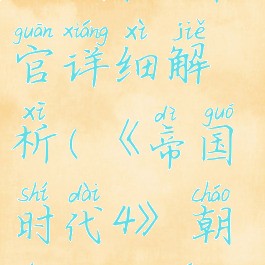 guān xiáng xì jiě
官详细解
xī dì guó
析(《帝国
shí dài cháo
时代4》朝